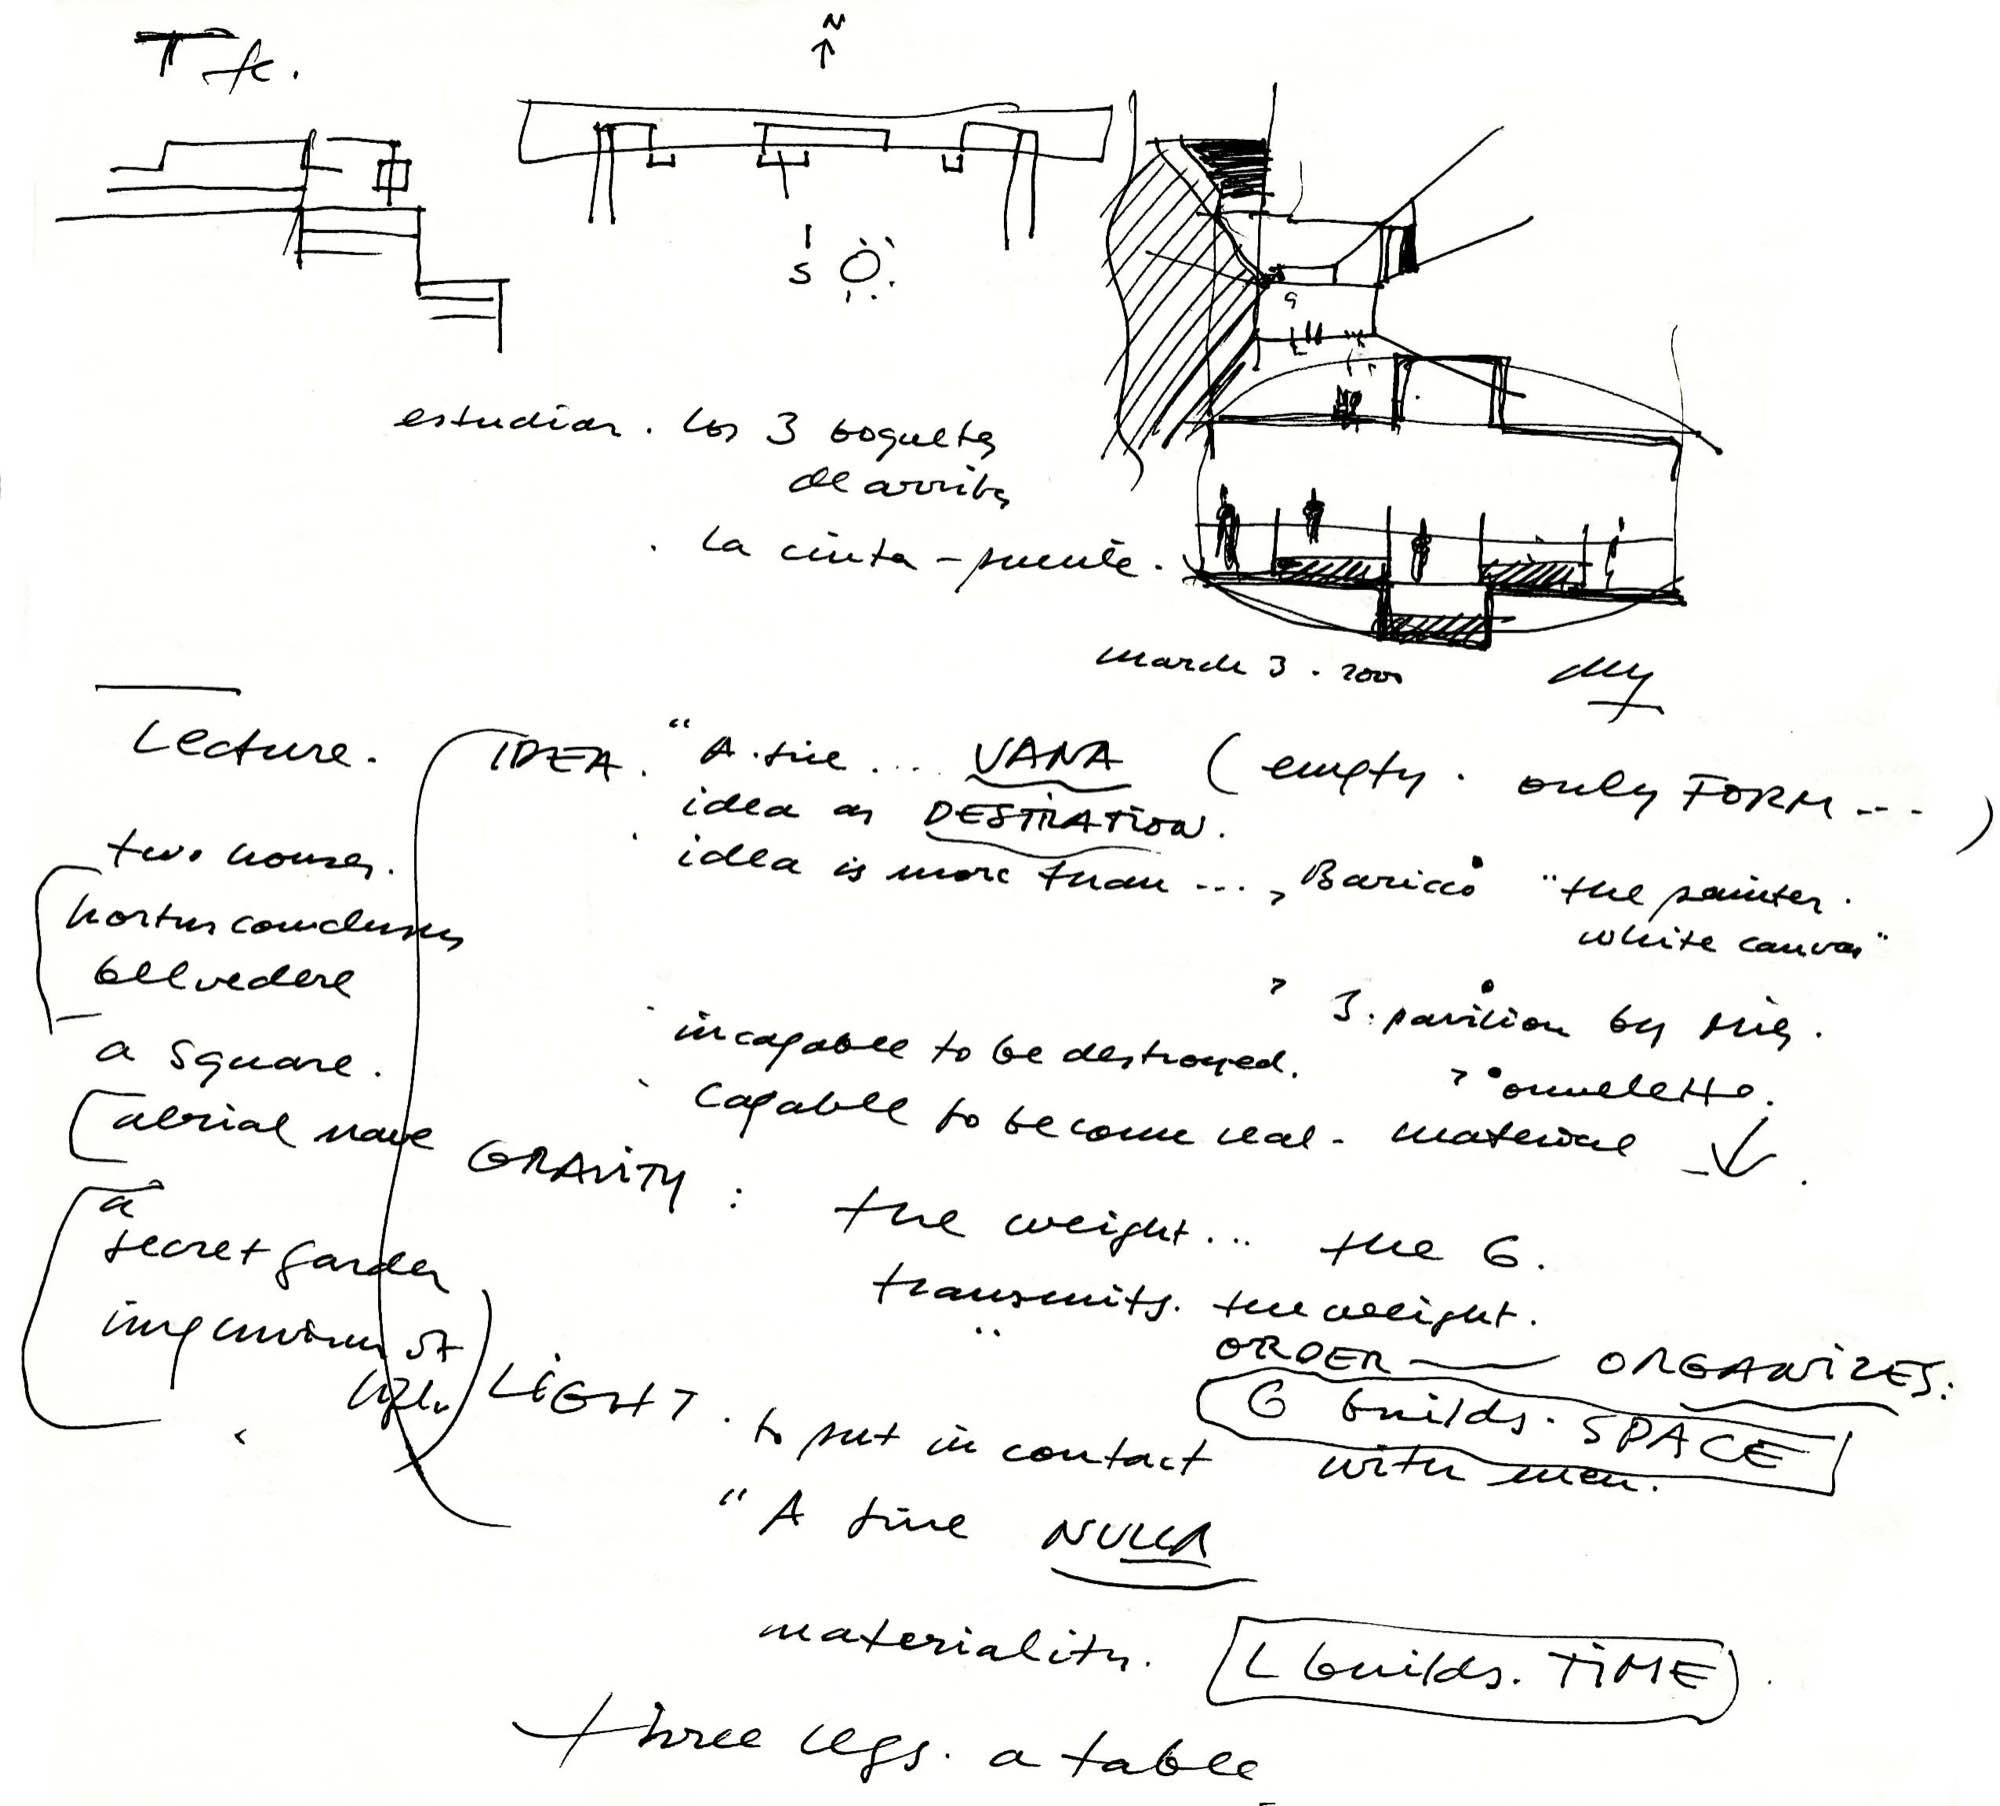 T fc.
N
S
estudiar. los 3 boquetes
de arriba
. la cinta - puente.
march 3 . 2000
Lecture.
two houses.
hortus conclusus
belvedere
a square.
aerial nave
a
secret garden
impluvium of
light
IDEA. "A sine .... VANA (empty . only FORM ... )
idea as DESTINATION.
idea is more than ... , Baricco "the painter .
white canvas"
3. pavilion by Mies.
incapable to be destroyed.
omelette.
capable to become real - material
GRAVITY : the weight... the G.
transmits. the weight.
" ORDER — ORGANIZES:
G builds. SPACE
LIGHT . to put in contact with men.
"A sine NULLA
materiality. L builds. TIME
three legs. a table